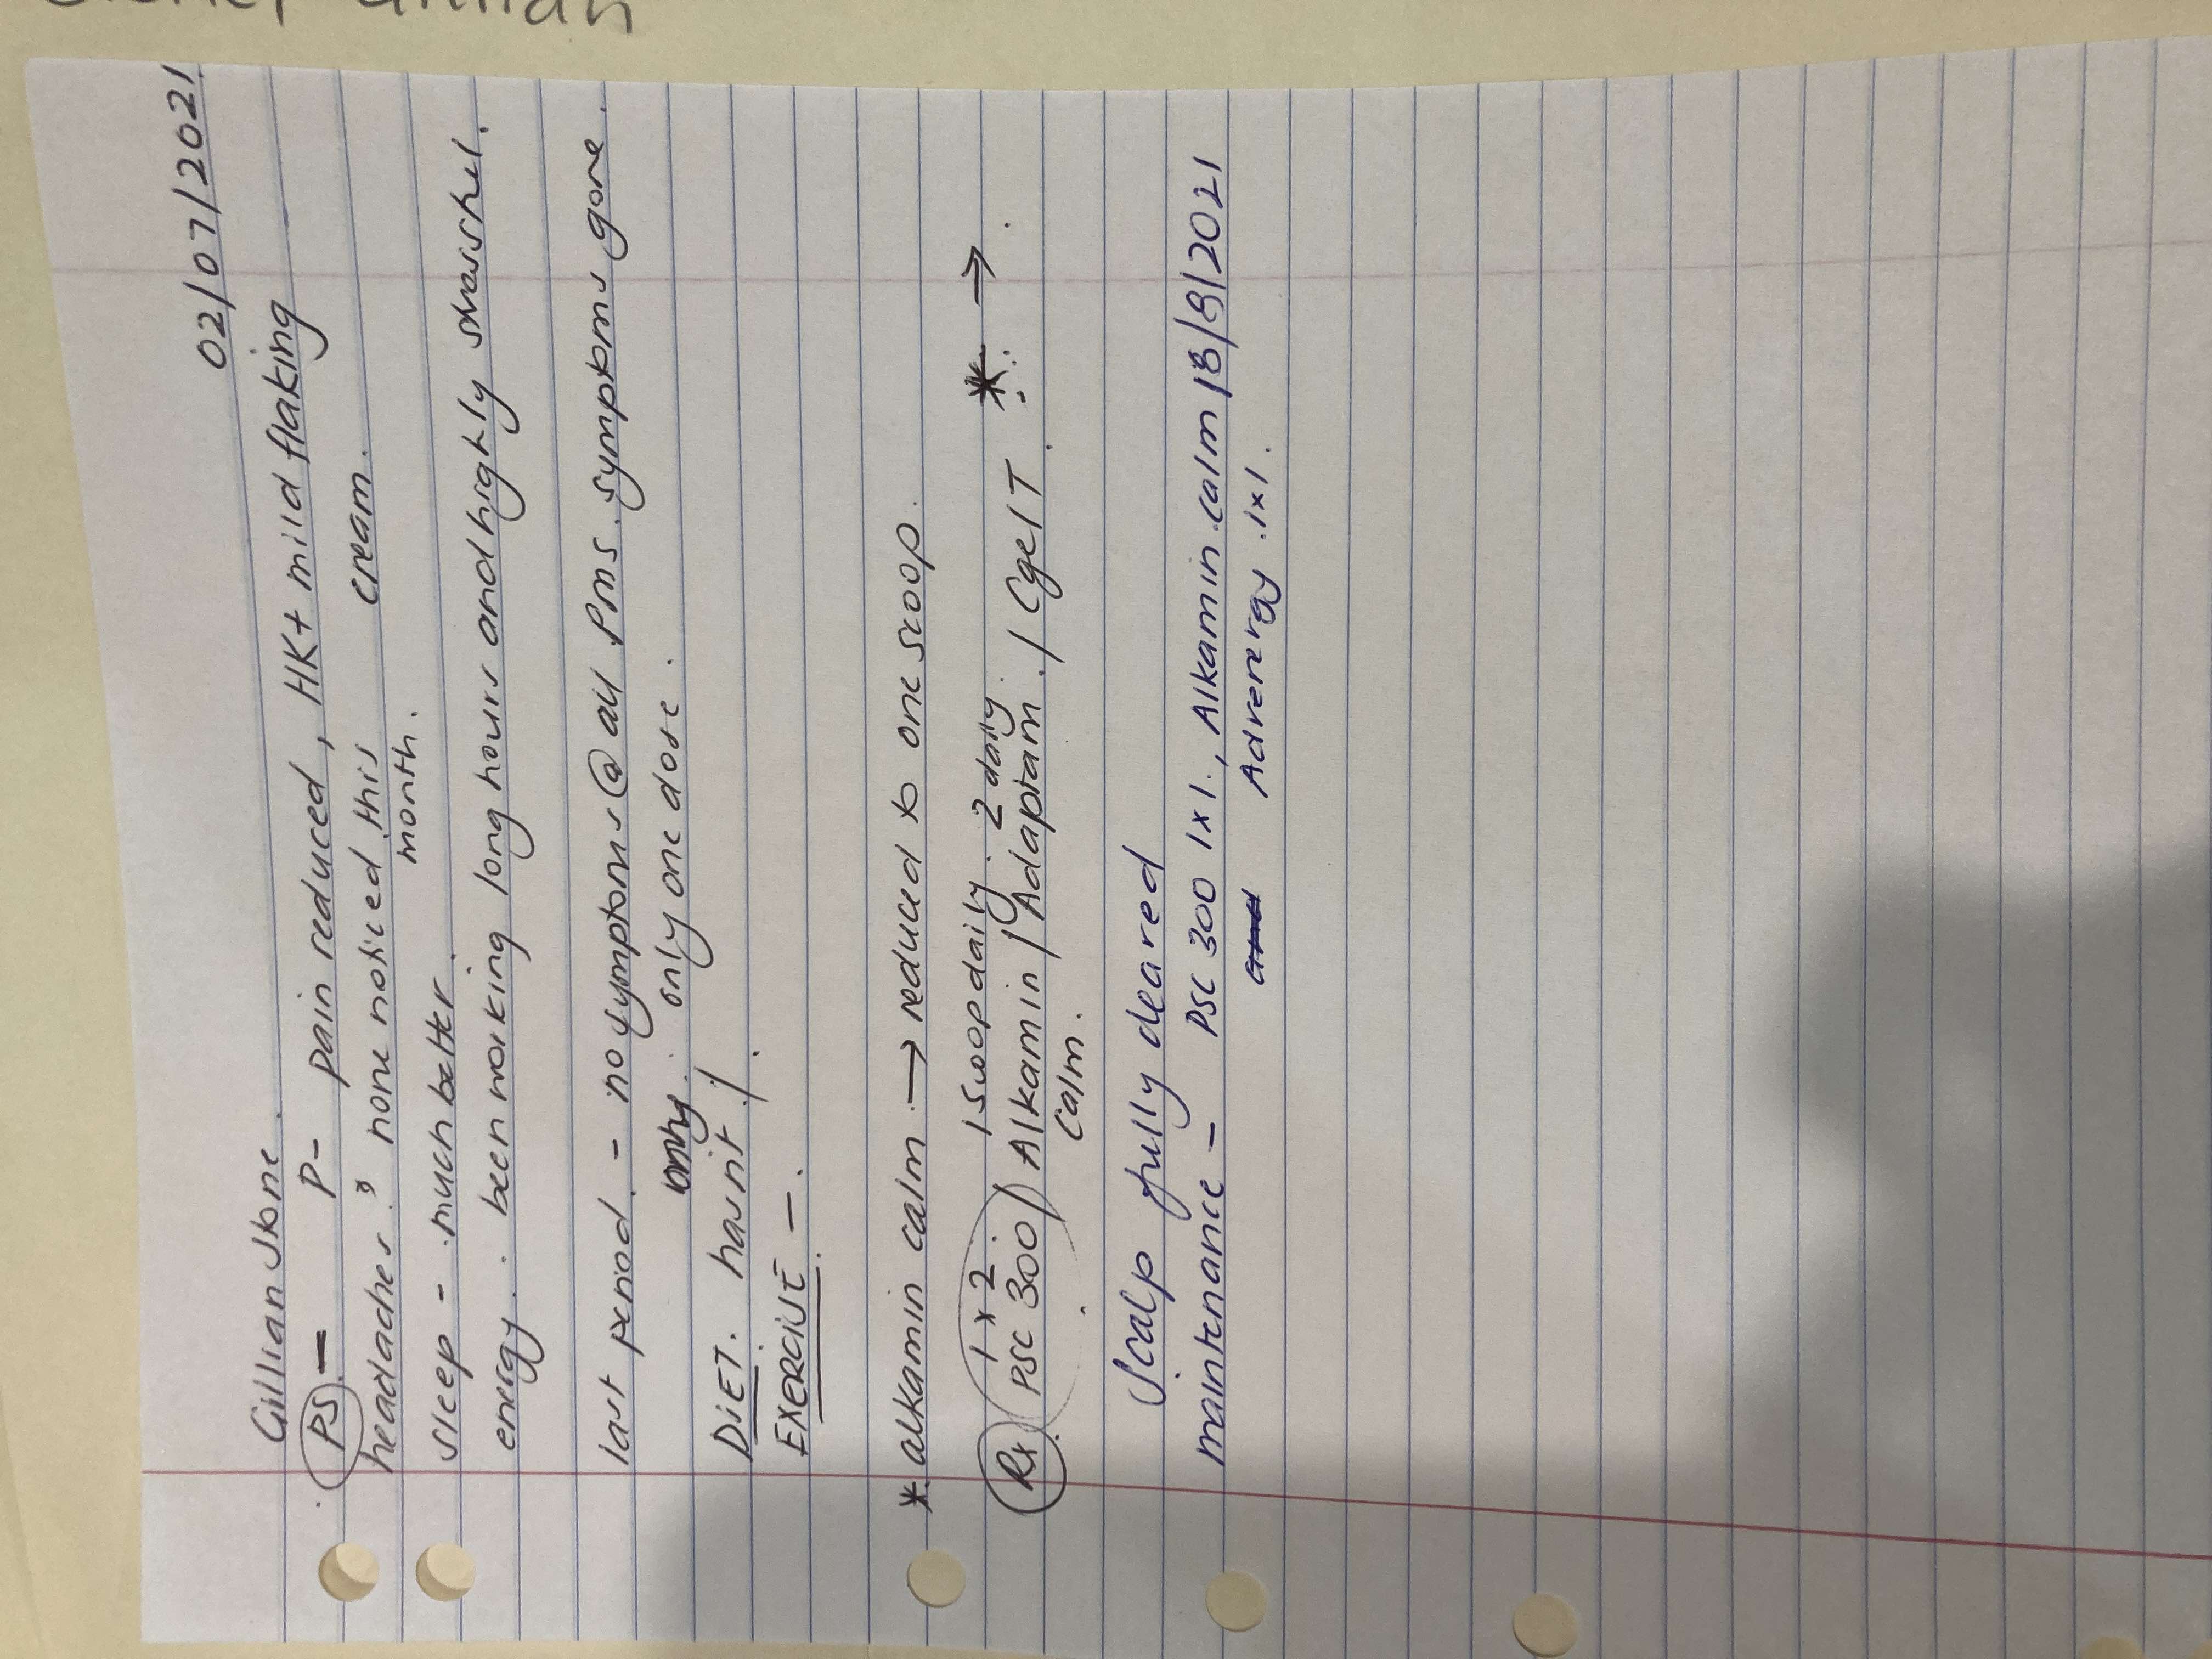 Gillian
02/07/2021
Gillian Stone.
PS - P- pain reduced, HK+ mild flaking
headaches? none noticed this cream.
month.
sleep - much better.
energy. been working long hours and highly stressed.
last period - no symptoms @ all PMS symptoms gone.
only one dose.
DIET. hasnt /.
EXERCISE -.
* alkamin calm. → reduced to one scoop.
1x2. 1 scoop daily. 2 daily.
Rx PSC 300 / Alkamin / Adaptam. / CgelT. * →.
calm.
Scalp fully cleared
maintenance - PSC 300 1x1., Alkamin calm 18/8/2021
and Adrenergy 1x1.